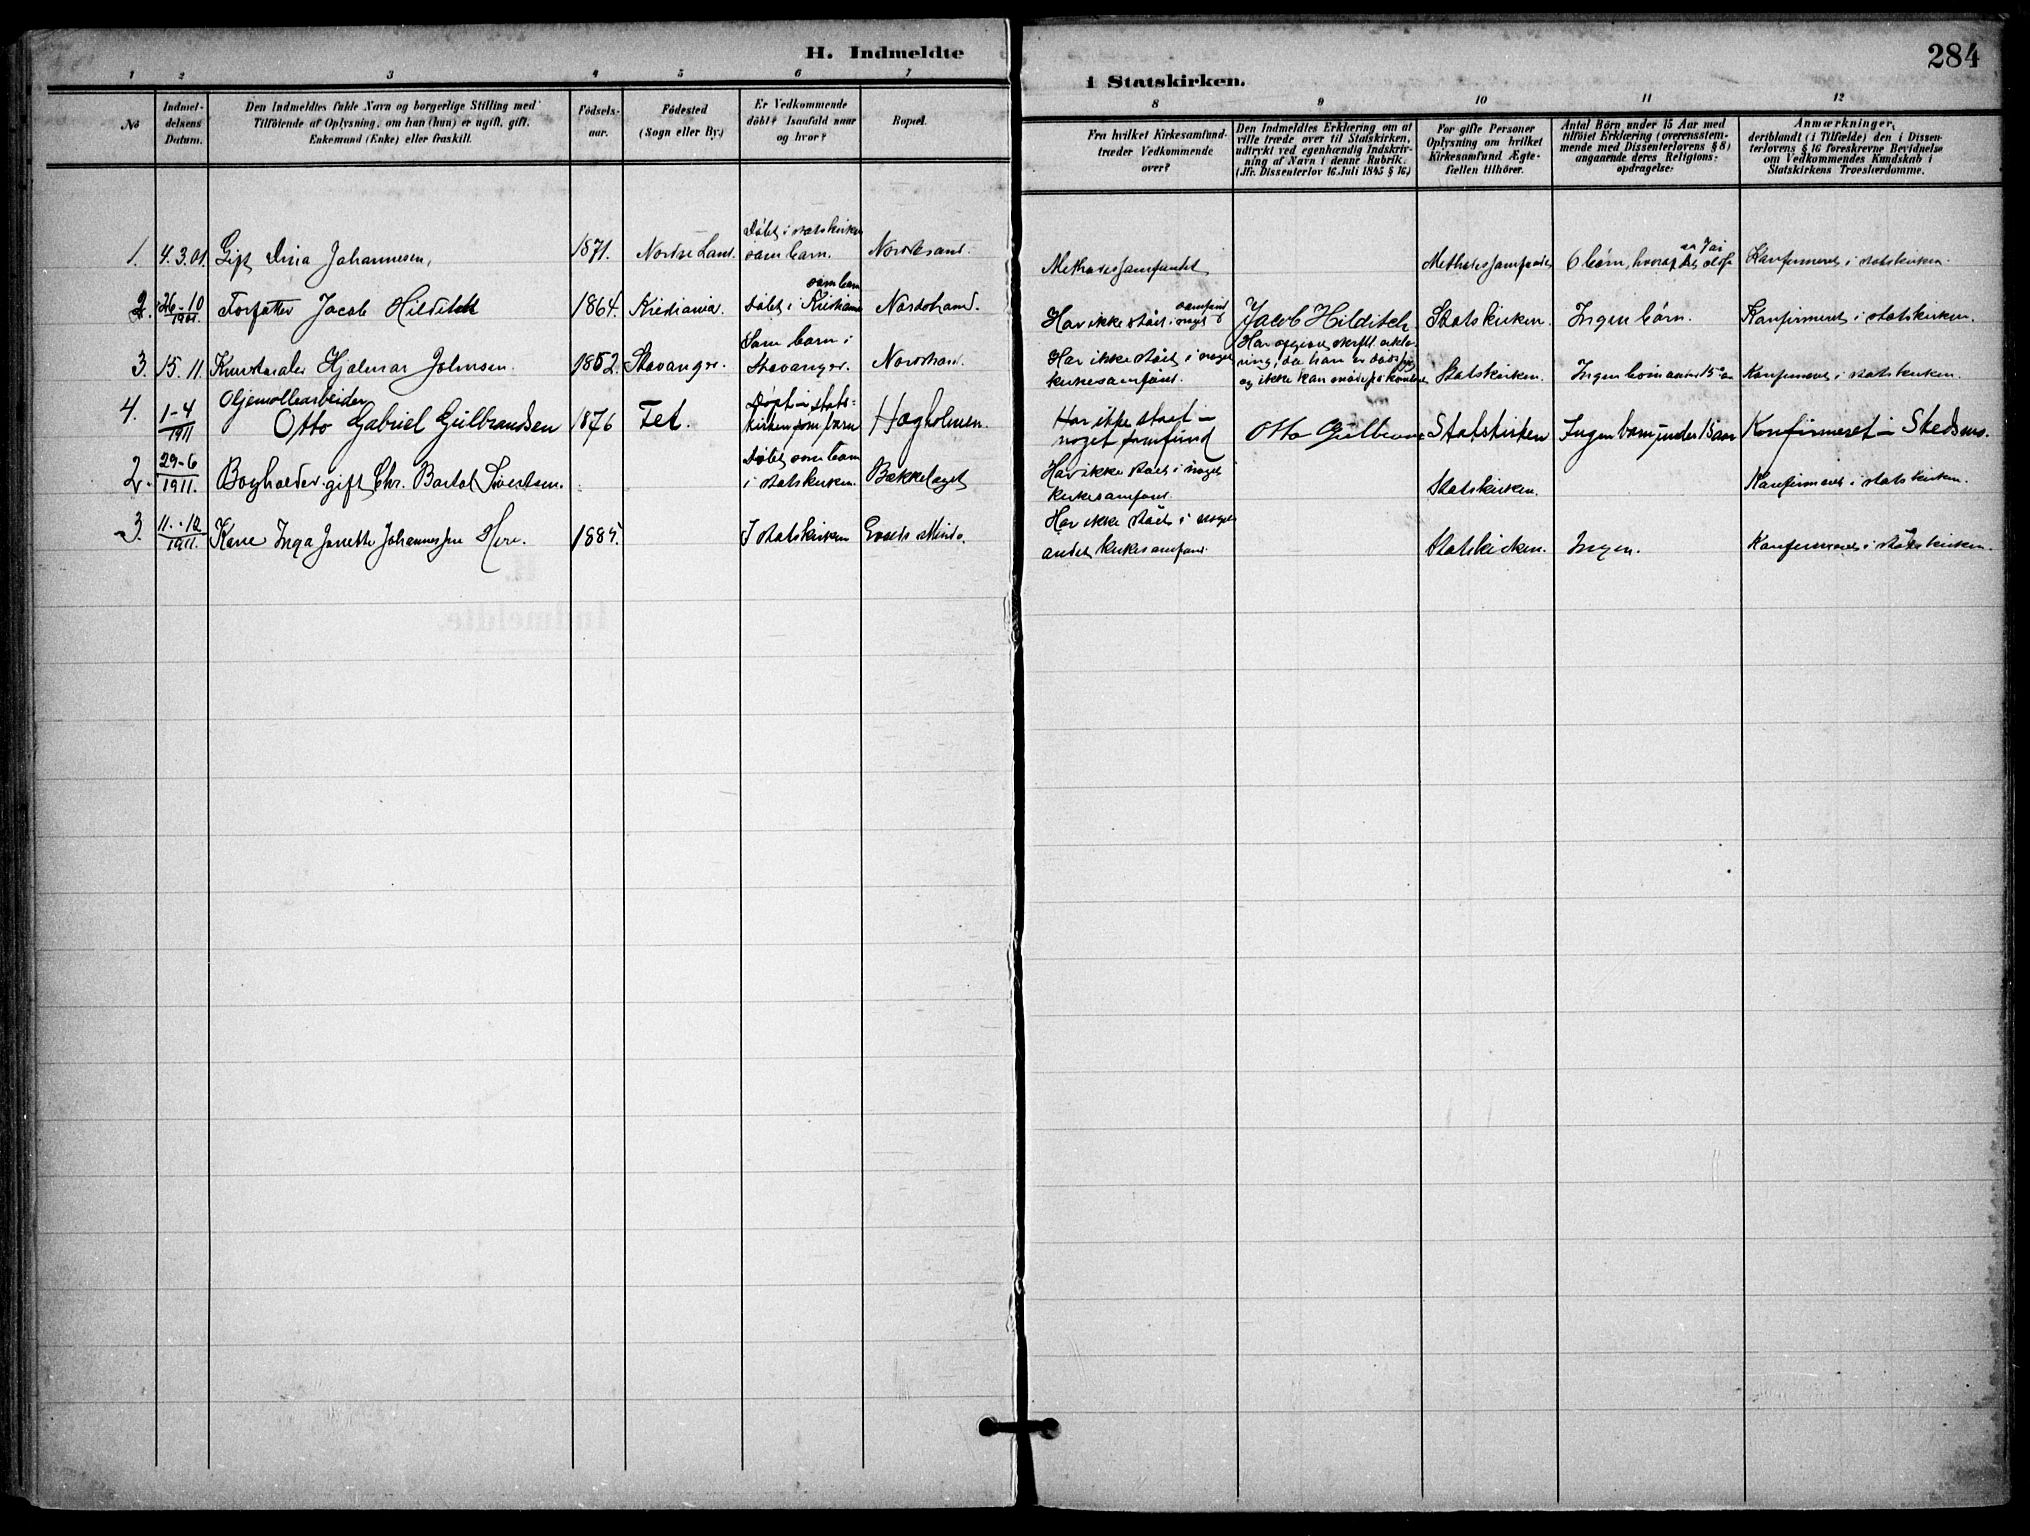 H. Indmeldte
i Statskirken.
284
1 2 3 4 5 6 7
8 9 10 11 12
No
Indmel-
delsens
Datum.
Den Indmeldtes fulde Navn og borgerlige Stilling med
Tilföiende af Oplysning, om han (hun) er ugift, gift,
Enkemand (Enke) eller fraskilt.
Födsels-
aar.
Födested
(Sogn eller By.)
Er Vedkommende
döbt? Isaafald naar
og hvor?
Bopæl.
Fra hvilket Kirkesamfund
træder Vedkommende
over?
Den Indmeldtes Erklæring om at
ville træde over til Statskirken,
udtrykt ved egenhændig Indskriv-
ning af Navn i denne Rubrik.
(Jfr. Dissenterlov 16. Juli 1845 § 16.)
For gifte Personer
Oplysning om hvilket
Kirkesamfund Ægte-
fællen tilhörer.
Antal Börn under 15 Aar med
tilföiet Erklæring (overensstem-
mende med Dissenterlovens § 8)
angaaende deres Religions-
opdragelse.
Anmærkninger,
deriblandt (i Tilfælde) den i Dissen-
terlovens § 16 foreskrevne Bevidnelse
om Vedkommendes Kundskab i
Statskirkens Troeslærdomme.
1. 4.3.01. Gift Dina Johannesen, 1871. Nordre Land. Døbt i statskirken som barn. Nordstrand. Methodistsamfundet Methodistsamfundet 6 børn, hvoraf Konfirmeret i statskirken.
2. 26-10 1901. Forfatter Jacob Hilditch 1864. Kristiania. Døbt i Kristiania som barn Nordstrand. Har ikke stået i noget samfund Jacob Hilditch Statskirken. Ingen børn. Konfirmeret i statskirken.
3. 15.11 Kunstmaler Hjalmar Johnsen. 1852. Stavanger. Som barn i Stavanger. Nordstrand. Har ikke stået i noget kirkesamfund. Har afgivet skriftl. erklæ-
ring, da han er
og ikke kan møde på kontoret Statskirken. Ingen børn under 15 år Konfirmeret i statskirken.
4. 1-4 1911 Oljemøllearbeider
Otto Gabriel Gulbrandsen 1876 Fet. Døpt i stats-
kirken som barn Hagholmen. Har ikke staaet i
noget samfund Otto Gulbran Statskirken Ingen barn under 15 aar Konfirmeret i Skedsmo.
2. 29-6 1911. Bogholder gift Chr. Bartol Sivertsen. Døbt som barn
i statskirken. Bækkelaget Har ikke stået i noget
kirkesamfund. Statskirken. Konfirmeret i statskirken.
3. 11.-12 1911. Kone Inga Janette Johannessen 1885. I statskirken Har ikke stået i noget
andet kirkesamfund. Statskirken. Ingen. Konfirmeret i statskirken.